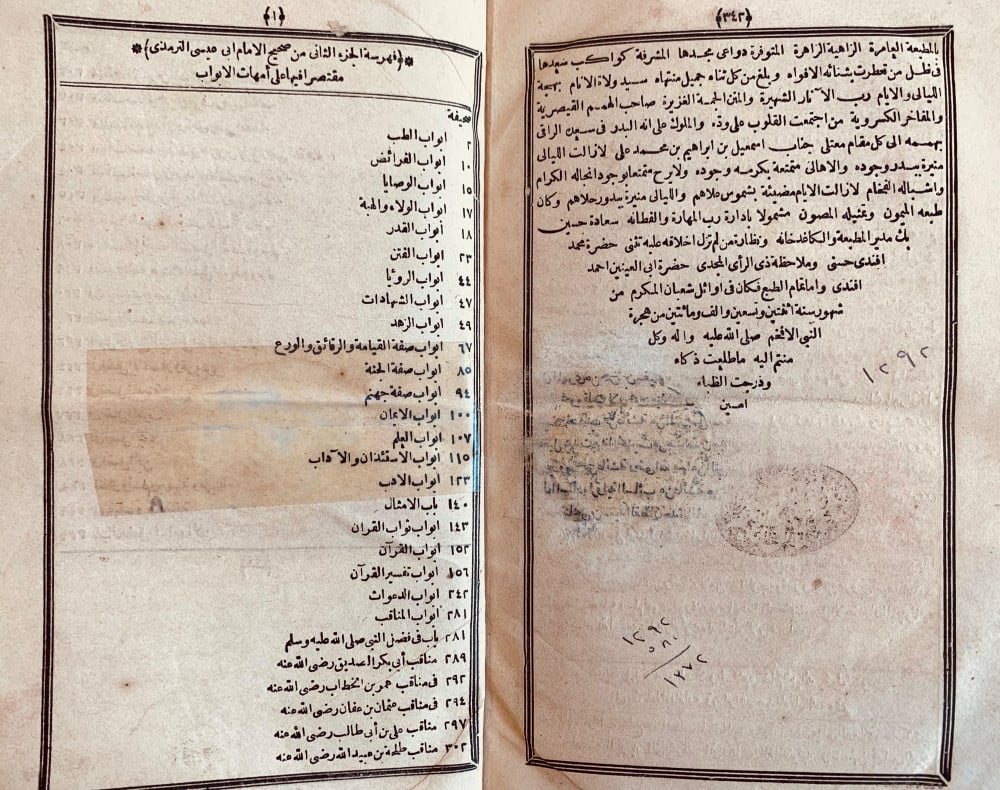 ﴿٣٤٢﴾
بالمطبعة العامرة الزاهية الزاهرة المتوفرة دواعى مجدها المشرقة كواكب سعدها
فى ظل من تعطرت بثنائه الافواه وبلغ من كل ثناء جميل منتهاه سيد ولاة الانام بهجة
الليالى والايام رب الآثار الشهيرة والمنن الجمة الغزيرة صاحب الهمم القيصرية
والمفاخر الكسروية من اجتمعت القلوب على وده والملوك على انه البدر فى سعده الراقى
بهممه الى كل مقام معتلى جناب اسمعيل بن ابراهيم بن محمد على لازالت الليالى
منيرة ببدر وجوده والاهالى متمتعة بكرمه وجوده ولا برح متمتعا بوجود انجاله الكرام
واشباله الفخام لازالت الايام مضيئة بشموس علاهم والليالى منيرة ببدور حلاهم وكان
طبعه الميمون وتمثيله المصون مشمولا بادارة رب المهارة والفطانه سعادة حسين
بك مدير المطبعة والكاغدخانه ونظارة من لم تزل اخلاقه عليه تثنى حضرة محمد
افندى حسنى وملاحظة ذى الرأى المجدى حضرة ابى العينين احمد
افندى واما تمام الطبع فكان فى اوائل شعبان المكرم من
شهور سنة اثنتين وتسعين والف ومائتين من هجرة
النبى الافخم صلى الله عليه وآله وكل
منتم اليه ماطلعت ذكاء
ودرجت الظباء
امين
١٢٩٢
١٢٩٢
١٢٧٢
﴿١﴾
*﴿فهرسة الجزء الثانى من صحيح الامام ابى عيسى الترمذى﴾*
مقتصرا فيها على أمهات الابواب
صحيفة
٢ ابواب الطب
١٠ ابواب الفرائض
١٥ ابواب الوصايا
١٧ ابواب الولاء والهبة
١٨ أبواب القدر
٢٣ ابواب الفتن
٤٤ ابواب الرؤيا
٤٧ ابواب الشهادات
٤٩ ابواب الزهد
٦٧ ابواب صفة القيامة والرقائق والورع
٨٥ ابواب صفة الجنة
٩٤ ابواب صفة جهنم
١٠٠ ابواب الايمان
١٠٧ ابواب العلم
١١٥ ابواب الاستئذان والآداب
١٢٣ ابواب الادب
١٤٠ باب الامثال
١٤٣ ابواب ثواب القران
١٥٢ ابواب القرآن
١٥٦ ابواب تفسير القرآن
٢٤٢ ابواب الدعوات
٢٨١ ابواب المناقب
٢٨١ باب فى فضل النبى صلى الله عليه وسلم
٢٨٩ مناقب أبى بكر الصديق رضى الله عنه
٢٩٢ فى مناقب عمر بن الخطاب رضى الله عنه
٢٩٤ فى مناقب عثمان بن عفان رضى الله عنه
٢٩٧ مناقب على بن أبى طالب رضى الله عنه
٣٠٢ مناقب طلحة بن عبيد الله رضى الله عنه